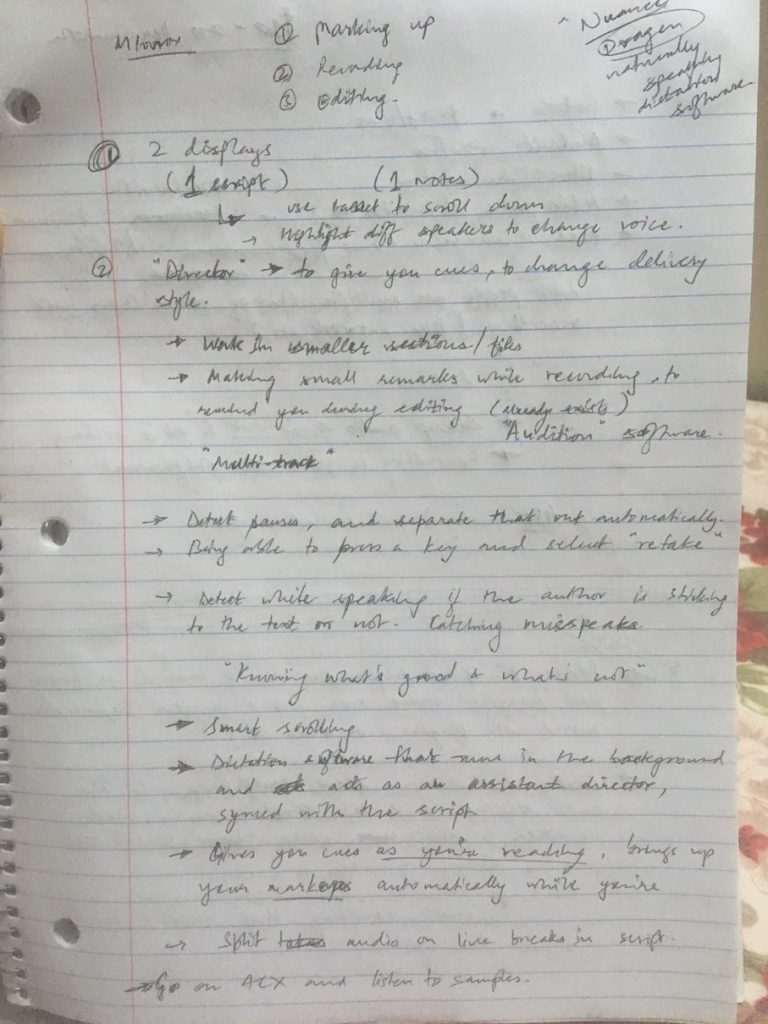 ① Marking up
② Recording
③ Editing.
Nuance
Dragon
naturally
speaking
dictation
software.
① 2 displays
(1 script) (1 notes)
↳ use to scroll down
→ Highlight diff speakers to change voice.
② "Director" → to give you cues, to change delivery
style.
→ Work in smaller sections/files
→ Making small remarks while recording, to
remind you during editing (already exists)
"Audition" software.
"Multi-track"
→ Detect pauses, and separate that out automatically.
→ Being able to press a key and select "retake"
→ Detect while speaking if the author is sticking
to the text or not. Catching misspeaks.
"Knowing what's good & what's not"
→ Smart scrolling
→ Dictation software that runs in the background
and acts as an assistant director,
synced with the script
→ Gives you cues as you're reading, brings up
your markups automatically while you're
→ Split audio on line breaks in script.
→ Go on ACX and listen to samples.